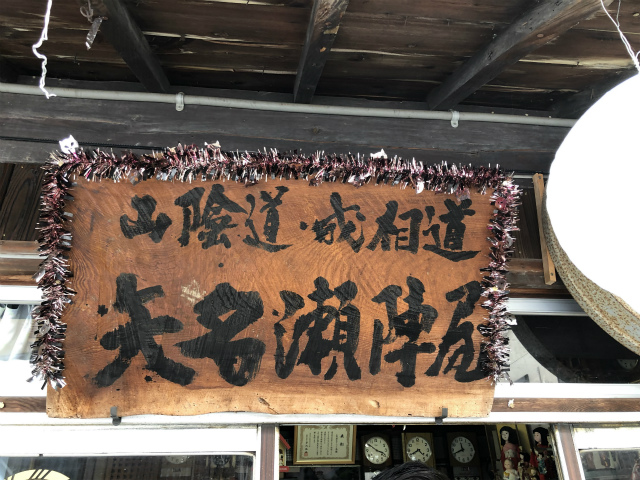 山陰道・成相道
夫名瀬陣屋